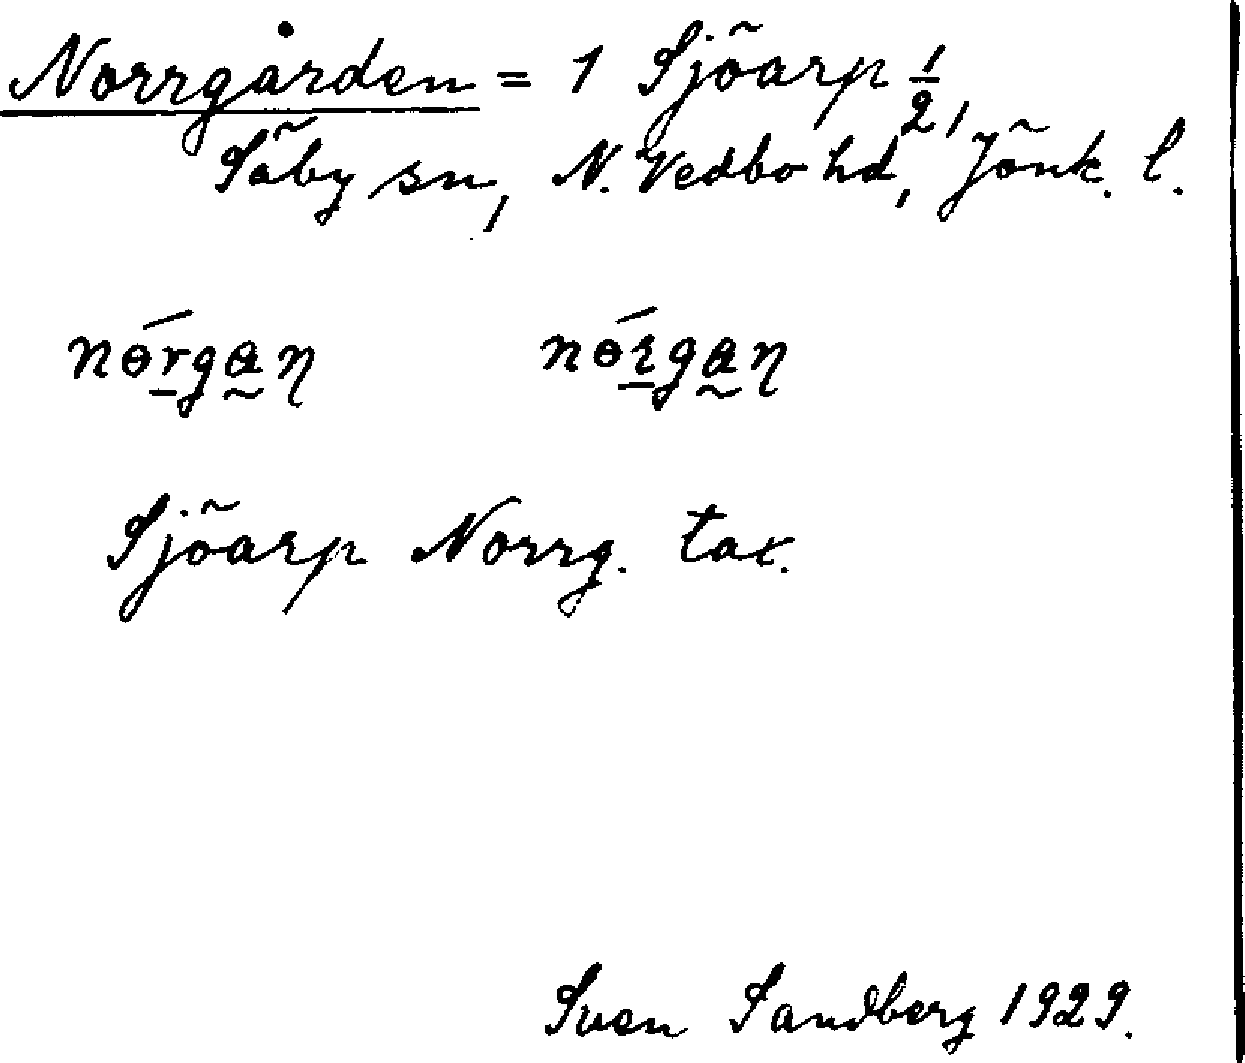 Norrgården = 1 Sjöarp 1/2,
Säby sn, N. Vedbo hd, Jönk. l.
nɵ́rgaɳ nɵ́ɽgaɳ
Sjöarp Norrg. tax.
Sven Sandberg 1929.